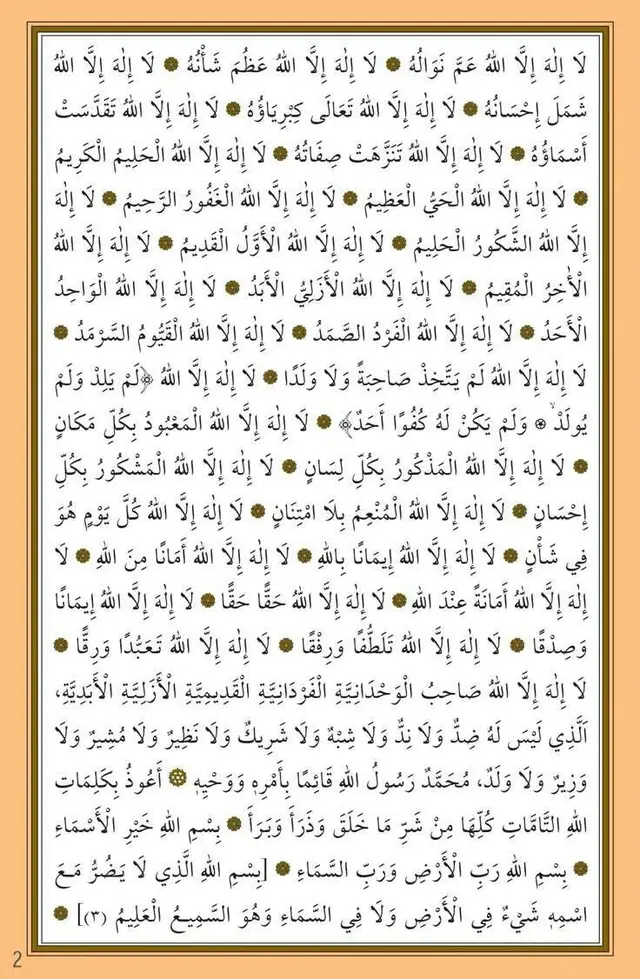 لَا إِلٰهَ إِلَّا اللهُ عَمَّ نَوَالُهُ ۞ لَا إِلٰهَ إِلَّا اللهُ عَظُمَ شَأْنُهُ ۞ لَا إِلٰهَ إِلَّا اللهُ
شَمَلَ إِحْسَانُهُ ۞ لَا إِلٰهَ إِلَّا اللهُ تَعَالَى كِبْرِيَاؤُهُ ۞ لَا إِلٰهَ إِلَّا اللهُ تَقَدَّسَتْ
أَسْمَاؤُهُ ۞ لَا إِلٰهَ إِلَّا اللهُ تَنَزَّهَتْ صِفَاتُهُ ۞ لَا إِلٰهَ إِلَّا اللهُ الْحَلِيمُ الْكَرِيمُ
۞ لَا إِلٰهَ إِلَّا اللهُ الْحَيُّ الْعَظِيمُ ۞ لَا إِلٰهَ إِلَّا اللهُ الْغَفُورُ الرَّحِيمُ ۞ لَا إِلٰهَ
إِلَّا اللهُ الشَّكُورُ الْحَلِيمُ ۞ لَا إِلٰهَ إِلَّا اللهُ الْأَوَّلُ الْقَدِيمُ ۞ لَا إِلٰهَ إِلَّا اللهُ
الْأٰخِرُ الْمُقِيمُ ۞ لَا إِلٰهَ إِلَّا اللهُ الْأَزَلِيُّ الْأَبَدُ ۞ لَا إِلٰهَ إِلَّا اللهُ الْوَاحِدُ
الْأَحَدُ ۞ لَا إِلٰهَ إِلَّا اللهُ الْفَرْدُ الصَّمَدُ ۞ لَا إِلٰهَ إِلَّا اللهُ الْقَيُّومُ السَّرْمَدُ ۞
لَا إِلٰهَ إِلَّا اللهُ لَمْ يَتَّخِذْ صَاحِبَةً وَلَا وَلَدًا ۞ لَا إِلٰهَ إِلَّا اللهُ ﴿لَمْ يَلِدْ وَلَمْ
يُولَدْۙ ۞ وَلَمْ يَكُنْ لَهُ كُفُوًا أَحَدٌ﴾ ۞ لَا إِلٰهَ إِلَّا اللهُ الْمَعْبُودُ بِكُلِّ مَكَانٍ
۞ لَا إِلٰهَ إِلَّا اللهُ الْمَذْكُورُ بِكُلِّ لِسَانٍ ۞ لَا إِلٰهَ إِلَّا اللهُ الْمَشْكُورُ بِكُلِّ
إِحْسَانٍ ۞ لَا إِلٰهَ إِلَّا اللهُ الْمُنْعِمُ بِلَا امْتِنَانٍ ۞ لَا إِلٰهَ إِلَّا اللهُ كُلَّ يَوْمٍ هُوَ
فِي شَأْنٍ ۞ لَا إِلٰهَ إِلَّا اللهُ إِيمَانًا بِاللهِ ۞ لَا إِلٰهَ إِلَّا اللهُ أَمَانًا مِنَ اللهِ ۞ لَا
إِلٰهَ إِلَّا اللهُ أَمَانَةً عِنْدَ اللهِ ۞ لَا إِلٰهَ إِلَّا اللهُ حَقًّا حَقًّا ۞ لَا إِلٰهَ إِلَّا اللهُ إِيمَانًا
وَصِدْقًا ۞ لَا إِلٰهَ إِلَّا اللهُ تَلَطُّفًا وَرِفْقًا ۞ لَا إِلٰهَ إِلَّا اللهُ تَعَبُّدًا وَرِقًّا ۞
لَا إِلٰهَ إِلَّا اللهُ صَاحِبُ الْوَحْدَانِيَّةِ الْفَرْدَانِيَّةِ الْقَدِيمِيَّةِ الْأَزَلِيَّةِ الْأَبَدِيَّةِ،
اَلَّذِي لَيْسَ لَهُ ضِدٌّ وَلَا نِدٌّ وَلَا شِبْهٌ وَلَا شَرِيكٌ وَلَا نَظِيرٌ وَلَا مُشِيرٌ وَلَا
وَزِيرٌ وَلَا وَلَدٌ، مُحَمَّدٌ رَسُولُ اللهِ قَائِمًا بِأَمْرِهِ وَوَحْيِهِ ۞ أَعُوذُ بِكَلِمَاتِ
اللهِ التَّامَّاتِ كُلِّهَا مِنْ شَرِّ مَا خَلَقَ وَذَرَأَ وَبَرَأَ ۞ بِسْمِ اللهِ خَيْرِ الْأَسْمَاءِ
۞ بِسْمِ اللهِ رَبِّ الْأَرْضِ وَرَبِّ السَّمَاءِ ۞ [بِسْمِ اللهِ الَّذِي لَا يَضُرُّ مَعَ
اسْمِهِ شَيْءٌ فِي الْأَرْضِ وَلَا فِي السَّمَاءِ وَهُوَ السَّمِيعُ الْعَلِيمُ (٣)] ۞
2